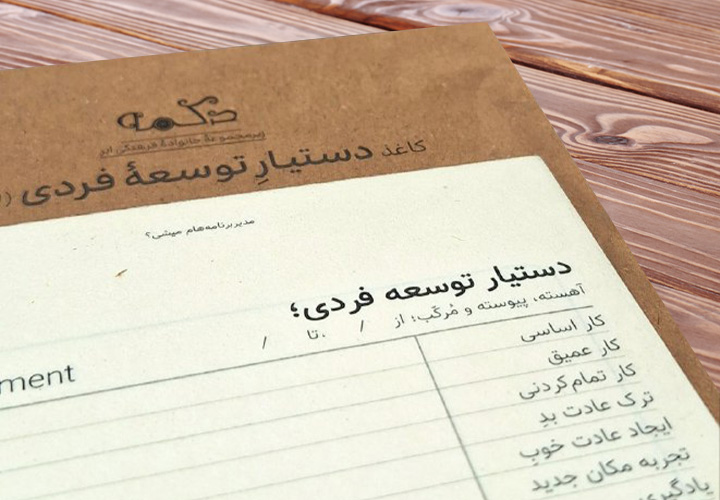 دکمه
زیرمجموعهٔ خانوادهٔ فرهنگی ابر
کاغذ دستیارِ توسعهٔ فردی
مدیر برنامه‌هام میشی؟
دستیار توسعه فردی؛
آهسته، پیوسته و مُرکّب؛ از / ،تا /
ment
کار اساسی
کار عمیق
کار تمام‌کردنی
ترک عادت بد
ایجاد عادت خوب
تجربه مکان جدید
یادگیری